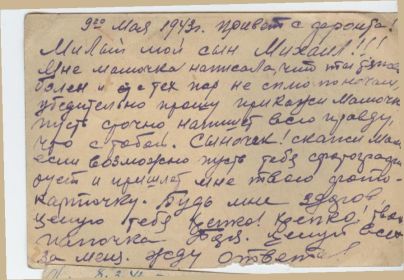 9го Мая 1943г. Привет с фронта!
Милый мой сын Михаил!!!
Мне мамочка написала, что ты
болен и я с тех пор не сплю по ночам,
убедительно прошу прикажи Мамочке
пусть срочно напишет всю правду,
что с тобой. Сыночек! скажи Маме,
если возможно пусть тебя сфотографи
рует и пришлет мне твою фото-
карточку. Будь мне здоров
целую тебя крепко! крепко! твой
папочка Целуй всех
за меня. Жду ответа!